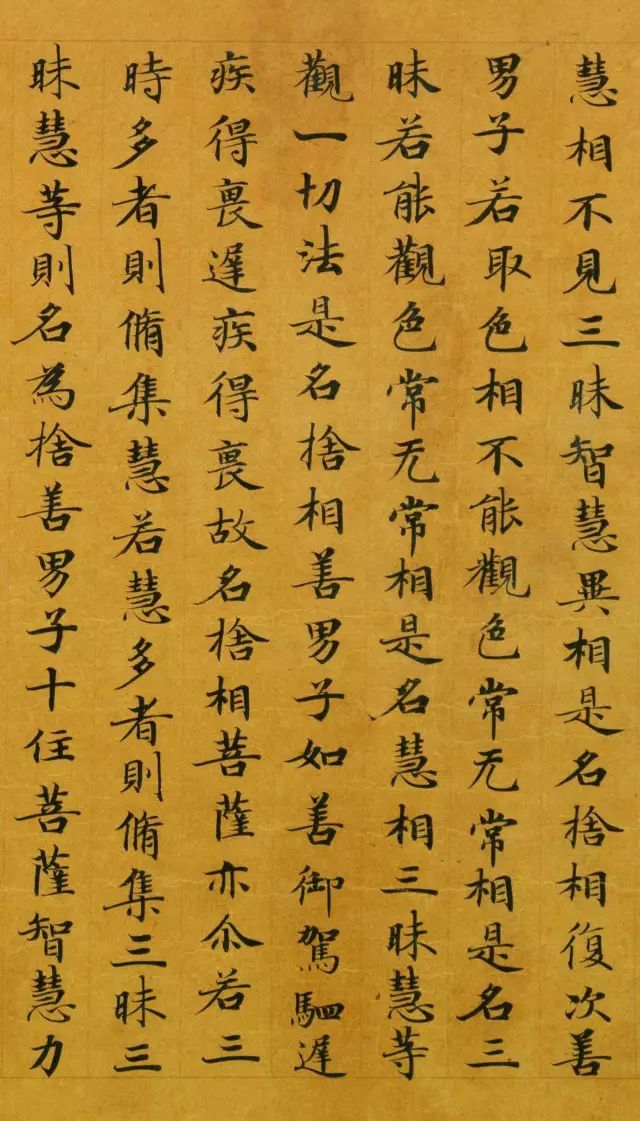 慧相不見三昧智慧異相是名捨相復次善
男子若取色相不能觀色常无常相是名三
昧若能觀色常无常相是名慧相三昧慧等
觀一切法是名捨相善男子如善御駕駟遲
疾得𠩄遲疾得𠩄故名捨相菩薩亦尒若三
時多者則脩集慧若慧多者則脩集三昧三
昧慧等則名為捨善男子十住菩薩智慧力